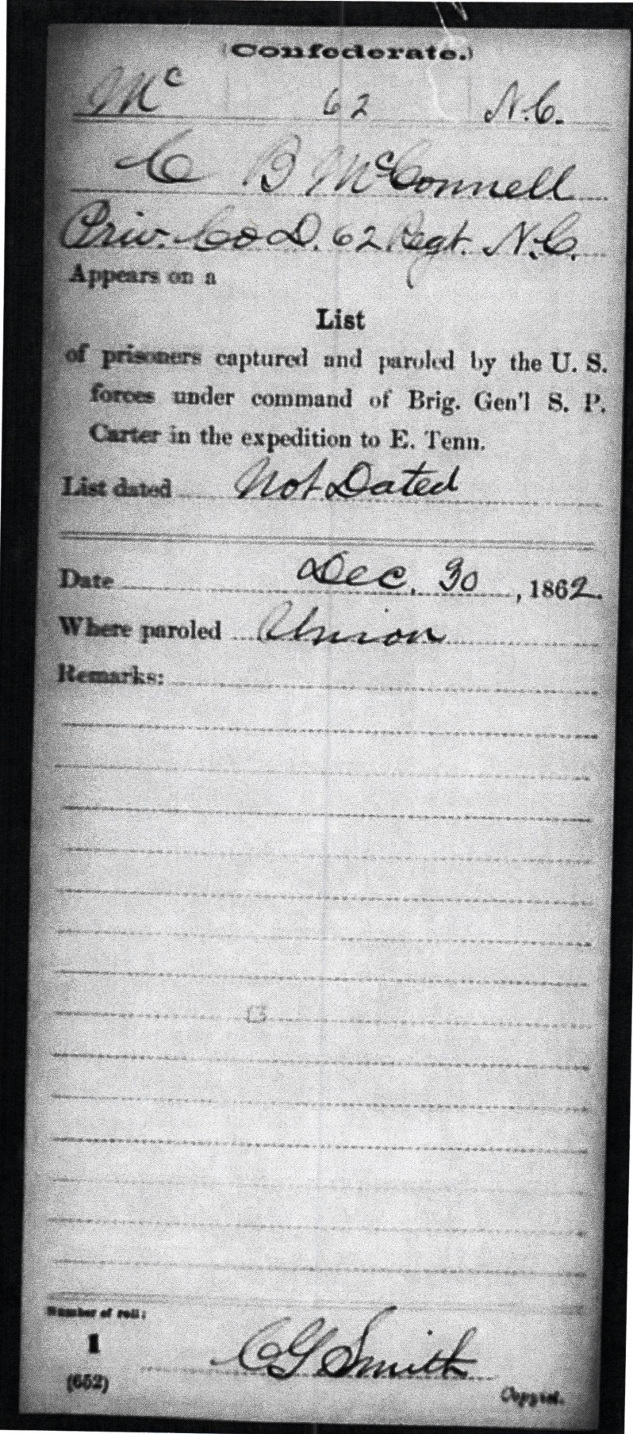 (Confederate.)
Mc 62 N.C.
C B McConnell
Priv. Co D. 62 Regt. N.C.
Appears on a
List
of prisoners captured and paroled by the U. S.
forces under command of Brig. Gen'l S. P.
Carter in the expedition to E. Tenn.
List dated Not Dated
Date Dec. 30, 1862.
Where paroled Union
Remarks:
Number of roll:
1
(652)
C G Smith
Copyist.